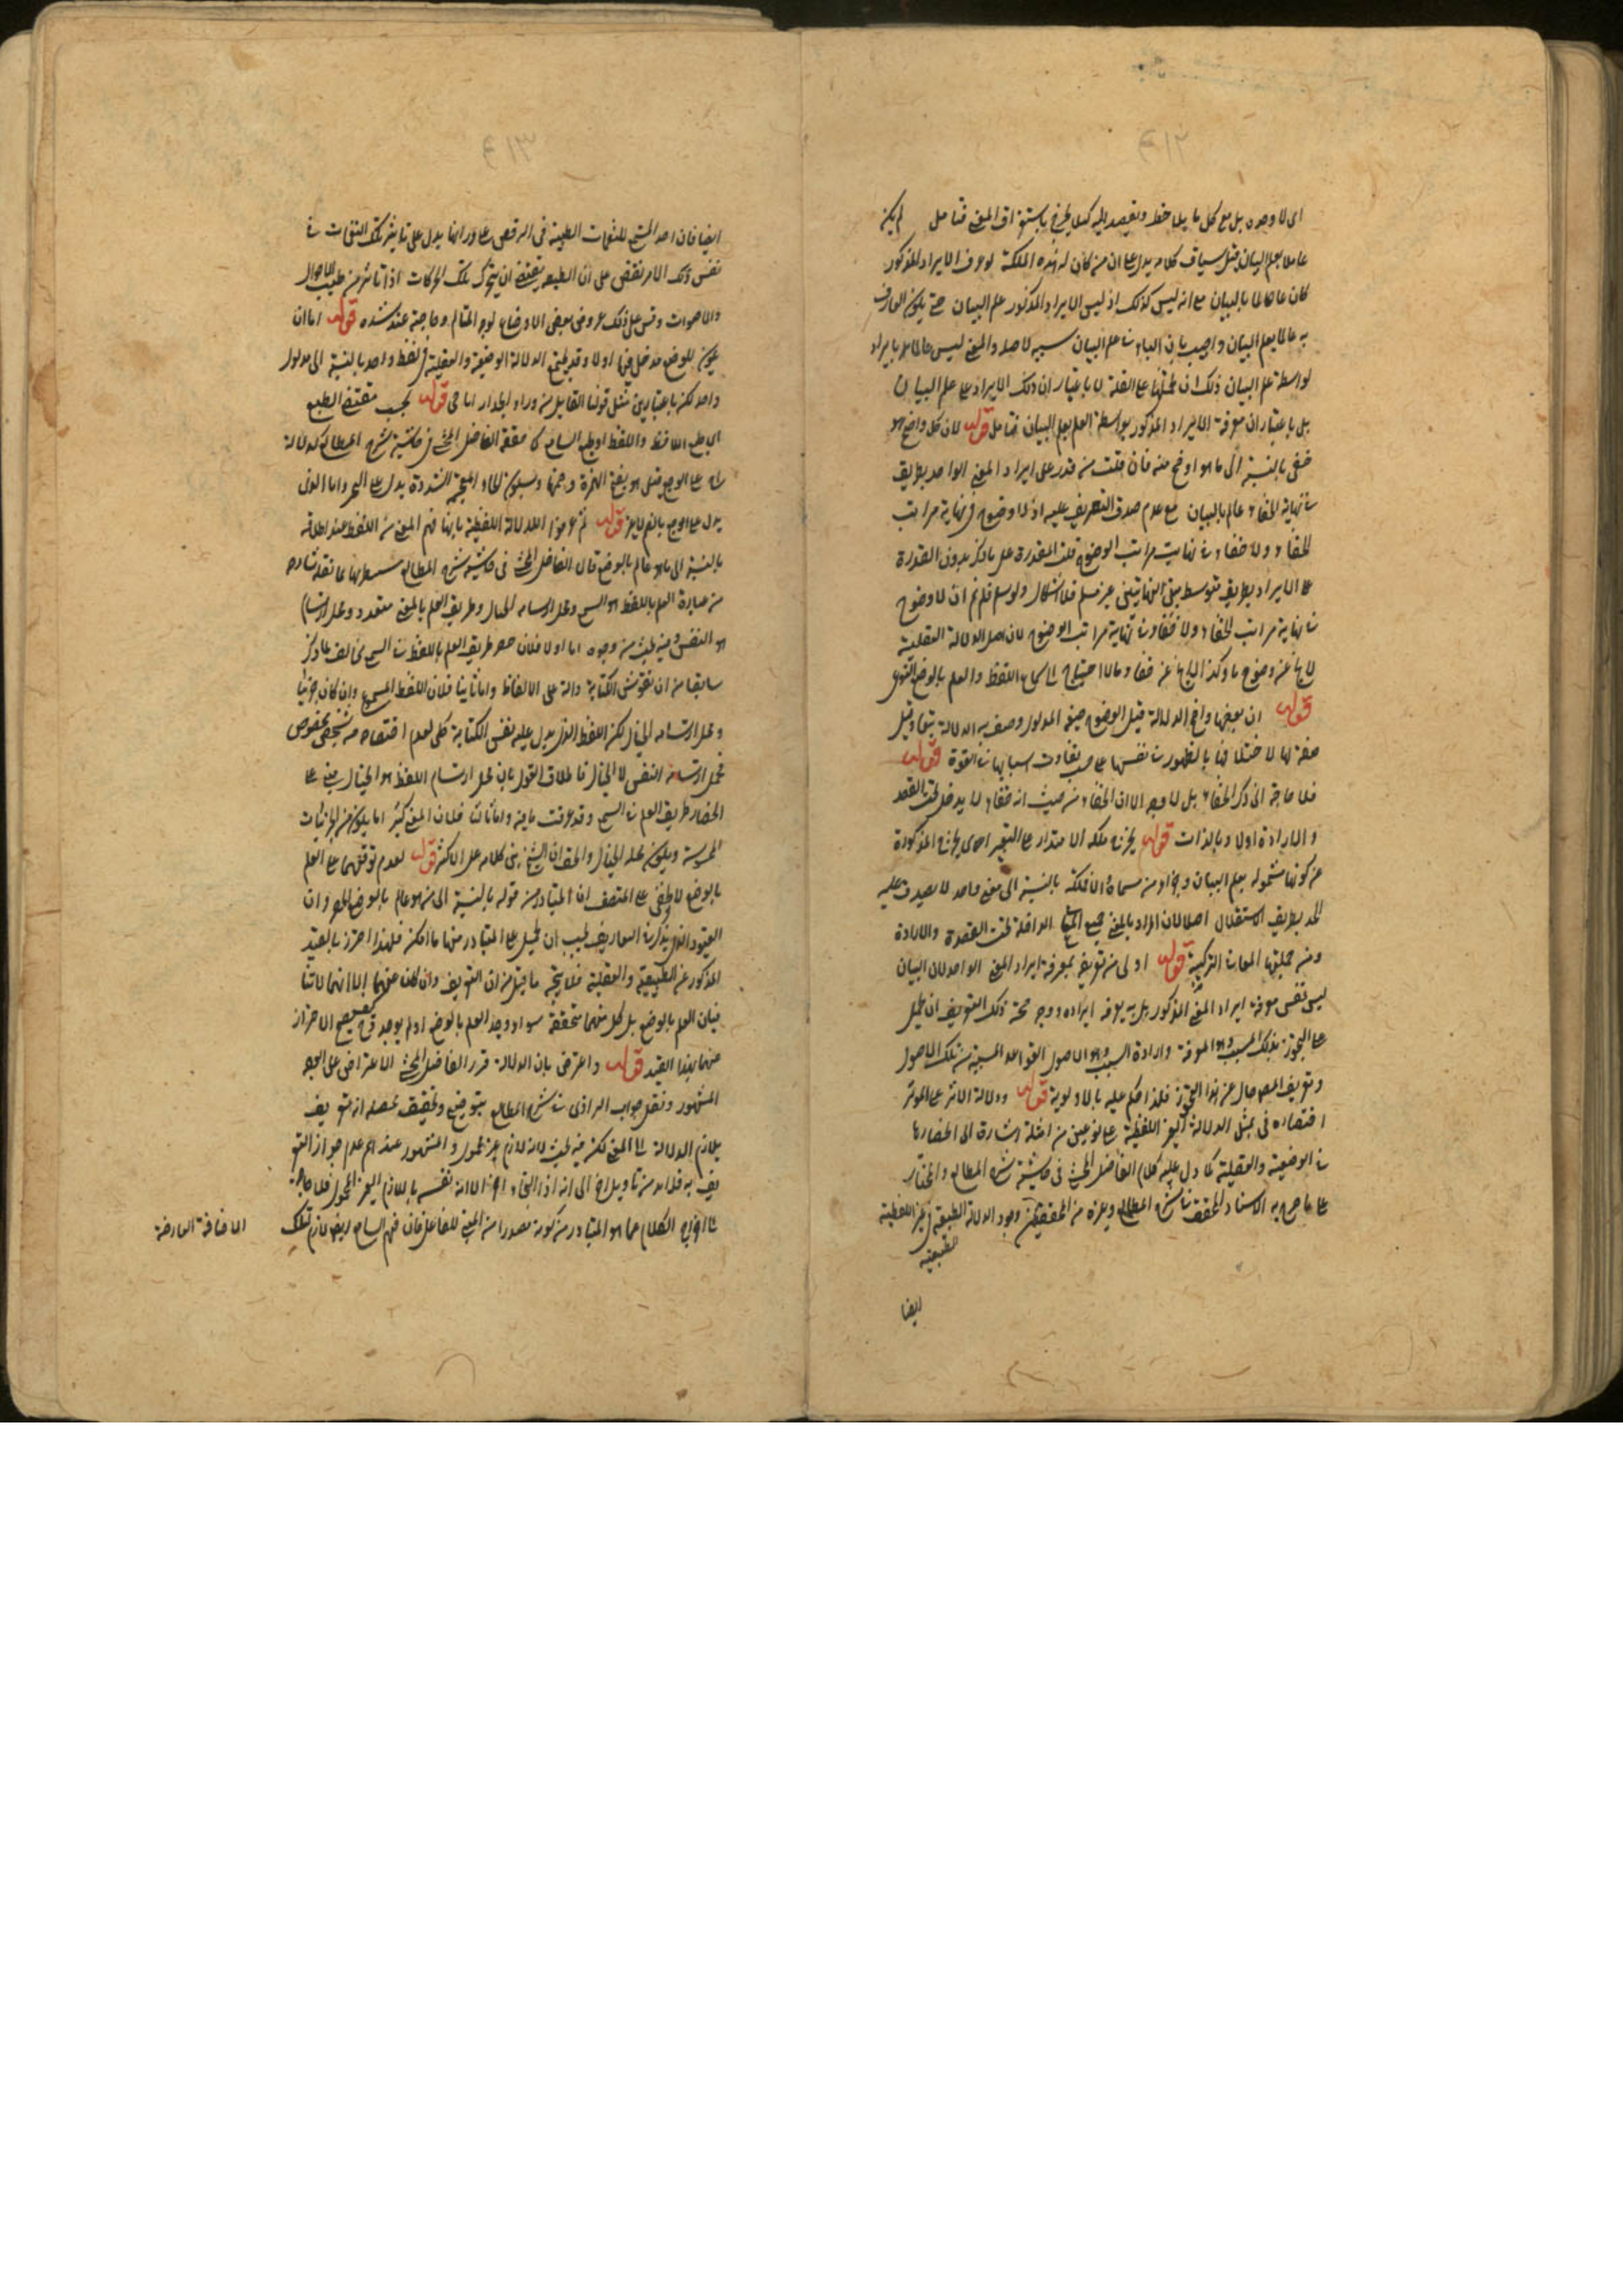 ٤١٢
اى لا وحده بل مع كل ما يلاحظ ويقصد اليه كيلا يخرج باستغراق المعنى فتأمل لم يكن
عالما بعلم البيان قيل سياق كلامه يدل على ان من كان له هذه الملكة لو عرف الايراد المذكور
كان عالما بالبيان مع انه ليس كذلك اذ ليس الايراد المذكور علم البيان حتى يكون العارف
به عالما بعلم البيان واجيب بان الباء فى بعلم البيان سببية لا صلة والمعنى ليس عالما بايراد
بواسطة علم البيان ذلك ان تحملها على الصلة لا باعتبار ان ذلك الايراد على علم البيان
بل باعتبار ان معرفة الايراد المذكور بواسطة العلم بعلم البيان فتأمل قوله لان كل واضح هو
خفى بالنسبة الى ما هو اوضح منه فان قلت من قدر على ايراد المعنى الواحد بطريق
فى نهاية الخفاء عالم بالبيان مع عدم صدق التعريف عليه اذ لا وضوح فى نهاية مراتب
الخفاء ولا خفاء فى نهاية مراتب الوضوح قلت القدرة على ما ذكر بدون القدرة
على الايراد بطريق متوسط بين النهايتين غير مسلم فلا اشكال ولو سلم فلا نم ان لا وضوح
فى نهاية مراتب الخفاء ولا خفاء فى نهاية مراتب الوضوح لان اصل الدلالة العقلية
لا يخ عن وضوح ما وكذا الباقى عن خفاء ما لاحتياج الى سماع اللفظ والعلم بالوضع
قوله ان بعضها واضح الدلالة قيل الوضوح صفة المدلول وصف به الدلالة وقيل
صفة لها لاختلافها بالظهور فى نفسها على حسب تفاوت اسبابها فى القوة قوله
فلا حاجة الى ذكر الخفاء بل لا وجه لان الخفاء من حيث انه خفاء لا يدخل تحت القصد
والارادة اولا وبالذات قوله يخرج ملكة الاقتدار على التعبير اى يخرج المذكورة
عن كونها مشمولة بعلم البيان وجزاء من مسماه لان ملكته بالنسبة الى معنى واحد لا يصدق عليه
الحد بطريق الاستقلال اصلا لان المراد بالمعنى جميع المعانى الداخلة تحت القصد والارادة
ومن جملتها المعانى التركيبية قوله اولى من تعريف بمعرفة ايراد المعنى الواحد لان البيان
ليس نفس معرفة ايراد المعنى المذكور بل به يعرف ايراده ووجه صحة ذلك التعريف ان يحمل
على التجوز بذكر المسبب وهو المعرفة وارادة السبب وهو الاصول والقواعد
وتعريف المص خال عن هذا التجوز فلذا حكم عليه بالاولوية قوله ودلالة الاثر على المؤثر
اقتصاره فى تمثيل الدلالة الغير اللفظية على نوعين من امثلة اشارة الى انحصارها
فى الوضعية والعقلية كما دل عليه كلام الفاضل المحشى فى حاشية شرح المطالع والمختار
على ما صرح به الاستاد المحقق شرح المطالع وغيره من المحققين وجود الدلالة الطبيعية فى غير اللفظية
الطبيعية
ايضا
٤١٣
ايضا فان احد المستمع للنغمات الطيبة فى الرقص على اوزانها يدل على تاثير تلك النغمات فى
نفس ذلك الامر يقتضى على ان الطبيعة يقتضى ان يتحرك تلك الحركات اذا تاثر من طيب الاحوال
والاصوات وقس على ذلك عروض بعض الاوضاع لوجه المتألم وصاحبه عند شده قوله اما ان
يكون للوضع مدخل فيها اولا وقد يجتمع الدلالة الوضعية والعقلية فى لفظ واحد بالنسبة الى مدلول
واحد لكن باعتبارين مثل قولنا القائل من وراء الجدار انا حى قوله بحسب مقتضى الطبع
اى طبع اللافظ واللفظ او طبع السامع كما حققه الفاضل المحشى فى حاشية شرح المطالع كدلالة
اح على الوجع قيل هو بفتح الهمزة وضمها وسكون الحاء المعجمة المشددة يدل على التحسر واما الدال
يدل على الوجع بالضم قوله ثم عرفوا الدلالة اللفظية بانها فهم المعنى من اللفظ عند اطلاقه
بالنسبة الى ما هو عالم بالوضع قال الفاضل المحشى فى حاشية شرح المطالع
من عبارة العلم باللفظ هو السمع ومحل ارتسامه الخيال وطريق العلم بالمعنى متعدد ومحل ارتسامه
هو النفس وفيه بحث من وجوه اما اولا فلان حصر طريق العلم باللفظ فى السمع مخالف لما ذكر
سابقا من ان نقوش الكتابة دالة على الالفاظ واما ثانيا فلان اللفظ المسموع وان كان جزئيا
ومحل ارتسامه الخيال لكن اللفظ الذى يدل عليه نقش الكتابة كلى لعدم اختصاصه بشخص مخصوص
فمحل ارتسامه النفس لا الخيال فاطلاق القول بان محل ارتسام اللفظ هو الخيال مبنى على
انحصار طريق العلم فى السمع وقد عرفت ما فيه واما ثالثا فلان المعنى كثيرا ما يكون من الجزئيات
المحسوسة ويكون محله الخيال والحق ان الشيخ بنى كلامه على الاكثر قوله لعدم توقفهما على العلم
بالوضع لا يخفى على المنصف ان المتبادر من قوله بالنسبة الى من هو عالم بالوضع الحصر وان
القيود التى تذكر فى التعاريف يجب ان تحمل على المتبادر منها ما امكن فلهذا احترز بالقيد
المذكور عن الطبيعية والعقلية فلا يتجه ما قيل من ان التعريف وان كان الا انهما لا تنا
فيان العلم بالوضع بل كل منهما متحققة سواء وجد العلم بالوضع او لم يوجد فى تصحيح الاحتراز
عنهما بهذا القيد قوله واعترض بان الدلالة قرر الفاضل المحشى الاعتراض على الوجه
المشهور ونقل جواب الرازى فى شرح المطالع بتوضيح وتحقيق محصله انه تعريف
بلازم الدلالة الى المعنى لكن فيه بحث لانه لازم غير محمول والمشهور عندهم عدم جواز التعر
يف به فلا بد من تاويل اخر
فى اخراج الكلام عما هو المتبادر من كونه مصدرا من المبنى للفاعل فان فهم السامع ايضا لازم لتلك
الاضافة العارضة